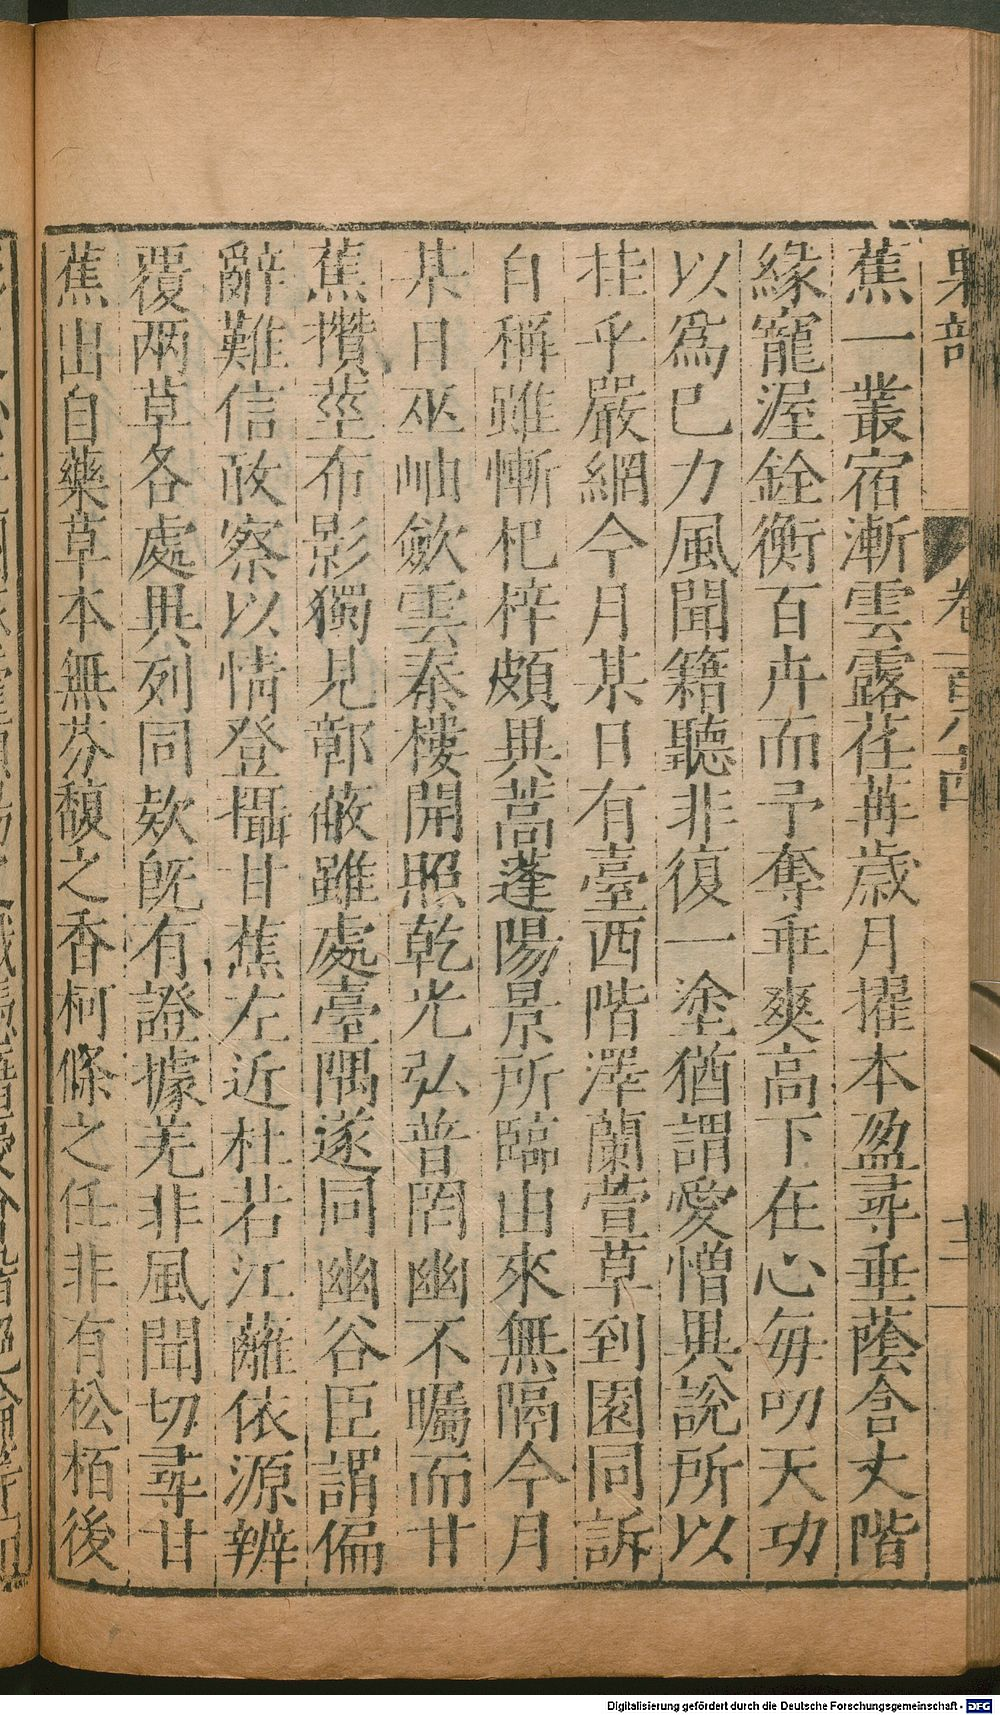 果部 卷一百八十四 十二
蕉一叢宿漸雲露荏苒歳月擢本盈尋垂蔭含丈階
緣寵渥銓衡百卉而予奪乖爽高下在心毎叨天功
以爲已力風聞籍聽非復一塗猶謂愛憎異說所以
挂乎嚴網今月某日有臺西階澤蘭萱草到園同訴
自稱雖慚杞梓頗異蒿蓬陽景所臨由來無隔今月
某日巫岫斂雲秦樓開照乾光弘普罔幽不矚而甘
蕉攢莖布影獨見鄣蔽雖處臺隅遂同幽谷臣謂偏
辭難信敢察以情登攝甘蕉左近杜若江蘺依源辨
覆兩草各處異列同欵旣有證據羌非風聞切尋甘
蕉出自藥草本無芬馥之香柯條之任非有松栢後
Digitalisierung gefördert durch die Deutsche Forschungsgemeinschaft - DFG